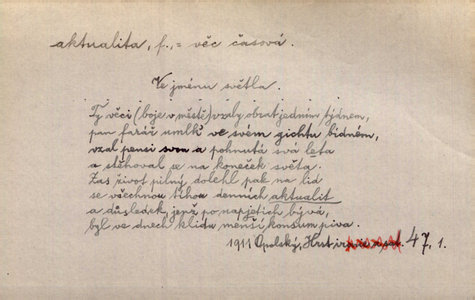 aktualita, f., = věc časová.
Ve jménu světla.
Ty věci (boje v městě) vzaly obrat jedním týdnem,
pan farář umlk' ve svém gichtu bídném,
vzal pensi svou a pohnutá svá leta
a stěhoval se na koneček světa.
Zas život pilný dolehl pak na lid
se všechnou tíhou denních aktualit
a důsledek, jenž po napjetích bývá,
byl ve dnech klidu menší konsum piva.
1911 Opolský, Hrst 47, 1.